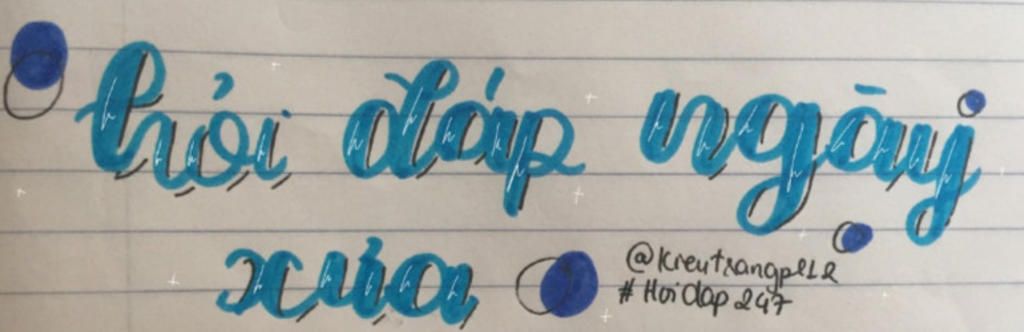 hỏi đáp ngày
xưa
@kieutrangpl12
#Hoidap247